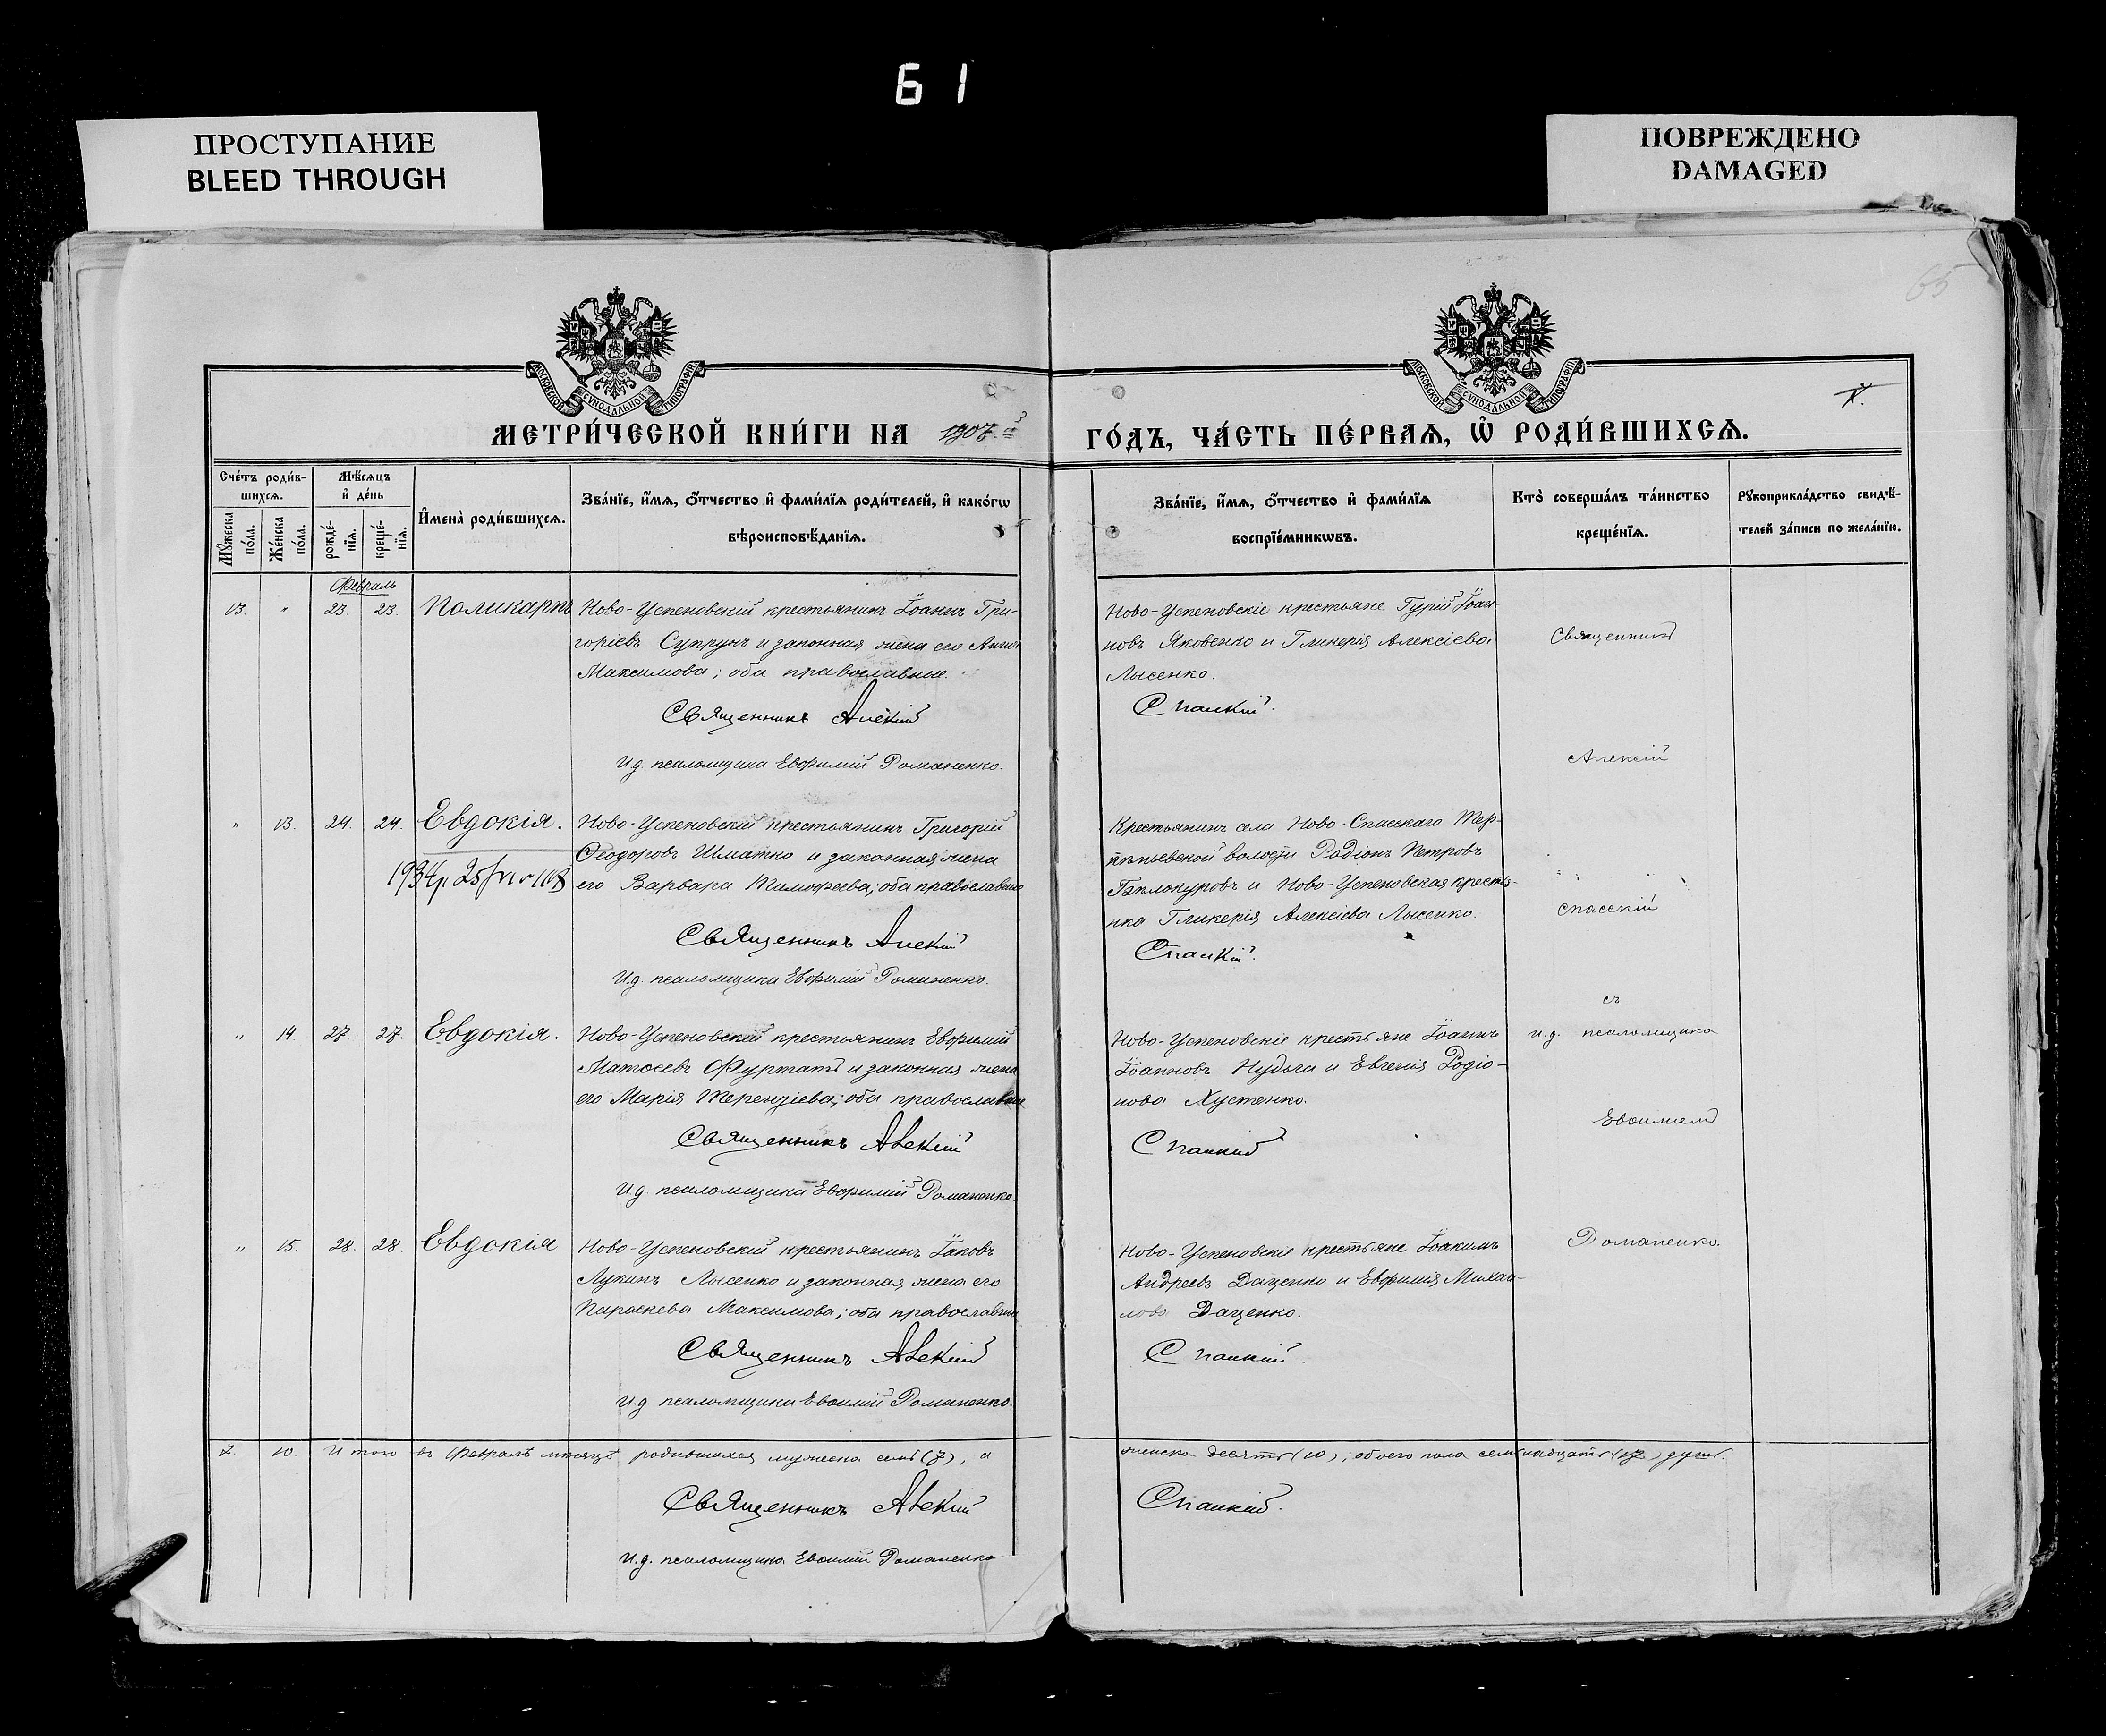 Б 1
ПРОСТУПАНИЕ
BLEED THROUGH
ПОВРЕЖДЕНО
DAMAGED
65
МОСКОВСКОЙ СѴНОДАЛЬНОЙ ТИПОГРАФІИ
МОСКОВСКОЙ СѴНОДАЛЬНОЙ ТИПОГРАФІИ
МЕТРИ́ЧЕСКОЙ КНИ́ГИ НА 1907.й
ГО́ДЪ, ЧА́СТЬ ПЕ́РВАѦ, Ѡ҆ РОДИ́ВШИХСѦ.
Сче́тъ роди́в-
шихсѧ.
Мѣ́сѧцъ
и҆ де́нь
Мꙋ́жеска по́ла.
Же́нска по́ла.
рожде́-нїѧ.
креще́-нїѧ.
И҆мена̀ роди́вшихсѧ.
Зва́нїе, и҆́мѧ, ѻ҆́тчество и҆ фами́лїѧ роди́телей, и҆ како́гѡ
вѣроисповѣ́данїѧ.
Зва́нїе, и҆́мѧ, ѻ҆́тчество и҆ фами́лїѧ
воспрїе́мникѡвъ.
Кто̀ соверша́лъ та́инство
креще́нїѧ.
Рꙋкоприкла́дство свидѣ́-
телей за́писи по жела́нїю.
Февраль
13. " 23. 23. Поликарпъ Ново-Успеновскій крестьянинъ Іоаннъ Гри-
горіевъ Супрунъ и законная жена его Анна
Максимова; оба православные.
Священникъ Алексій
И.д. псаломщика Евфимій Романенко.
Ново-Успеновскіе крестьяне Гурій Іоан-
новъ Яковенко и Гликерія Алексіева
Лысенко.
Спасскій.
Священникъ
Алексій
" 13. 24. 24. Евдокія. Ново-Успеновскій крестьянинъ Григорій
Ѳеодоровъ Шматко и законная жена
его Варвара Тимофеева; оба православные
Священникъ Алексій
И.д. псаломщика Евфимій Романенко.
Крестьянинъ села Ново-Спасскаго Тер-
пѣньевской волости Родіонъ Петровъ
и Ново-Успеновская крестья-
нка Гликерія Алексіева Лысенко.
Спасскій.
Спасскій
съ
" 14. 27. 27. Евдокія. Ново-Успеновскій крестьянинъ Евфимій
Матѳеевъ и законная жена
его Марія Терентіева; оба православные
Священникъ Алексій
И.д. псаломщика Евфимій Романенко.
Ново-Успеновскіе крестьяне Іоаннъ
Іоанновъ Нудьга и Евгенія Родіо-
нова Хустенко.
Спасскій
и.д. псаломщика
Евѳиміемъ
" 15. 28. 28. Евдокія Ново-Успеновскій крестьянинъ Іаковъ
Лукинъ Лысенко и законная жена его
Параскева Максимова; оба православные
Священникъ Алексій
И.д. псаломщика Евѳимій Романенко.
Ново-Успеновскіе крестьяне Іоакимъ
Андреевъ Даценко и Евфимія Михаи-
лова Даценко.
Спасскій.
Романенко.
7. 10. Итого въ Февралѣ мѣсяцѣ родившихся мужеска семь (7), а
женска десять (10); обоего пола семнадцать (17) душъ.
Священникъ Алексій
Спасскій.
И.д. псаломщика Евѳимій Романенко